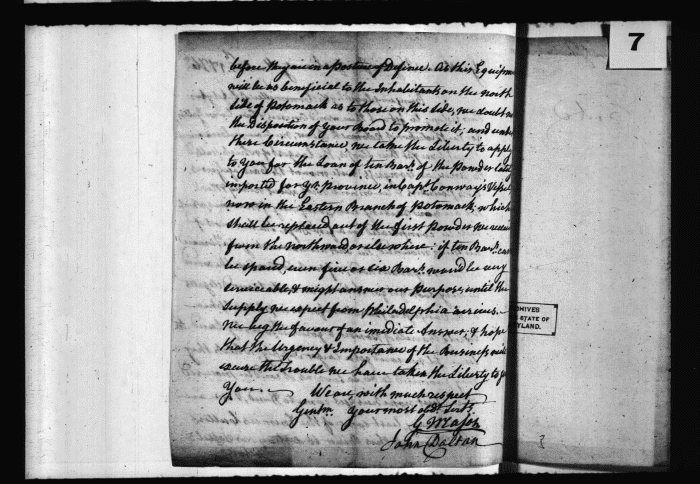 7
before they are in a Posture of Defence. As this Equipm
will be as beneficial to the Inhabitants on the north
side of Potomack as to those on this side, we doubt no
the Disposition of your Board to promote it; and under
these Circumstances, we take the Liberty to apply
to You for the Loan of ten Barls. of the Powder late
imported for yr. Province, in Capt. Conway's Vessel
now in the Eastern Branch of Potomack; which
shall be replaced out of the first Powder we receive
from the northward, or elsewhere: if ten Barls. can
be spared, even five or six Barls. would be very
serviceable, & might answer our Purpose, until the
Supply we expect from Philadelphia arrives.—
We beg the favour of an imediate Answer, & hope
that the Urgency & Importance of the Business will
excuse the Trouble we have taken the Liberty to g
You.— We are, with much respect
Gentm. Your most obdt. Servts.
G Mason
John Dalton
CHIVES
STATE OF
YLAND.